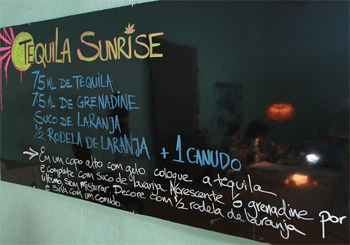 TEQUILA SUNRISE
75 ML DE TEQUILA
75 ML DE GRENADINE
SUCO DE LARANJA
½ RODELA DE LARANJA + 1 CANUDO
→ EM UM COPO ALTO COM GELO COLOQUE A TEQUILA
E COMPLETE COM SUCO DE LARANJA. ACRESCENTE O GRENADINE POR
ÚLTIMO, SEM MISTURAR. DECORE COM ½ RODELA DE LARANJA
E SIRVA COM UM CANUDO.